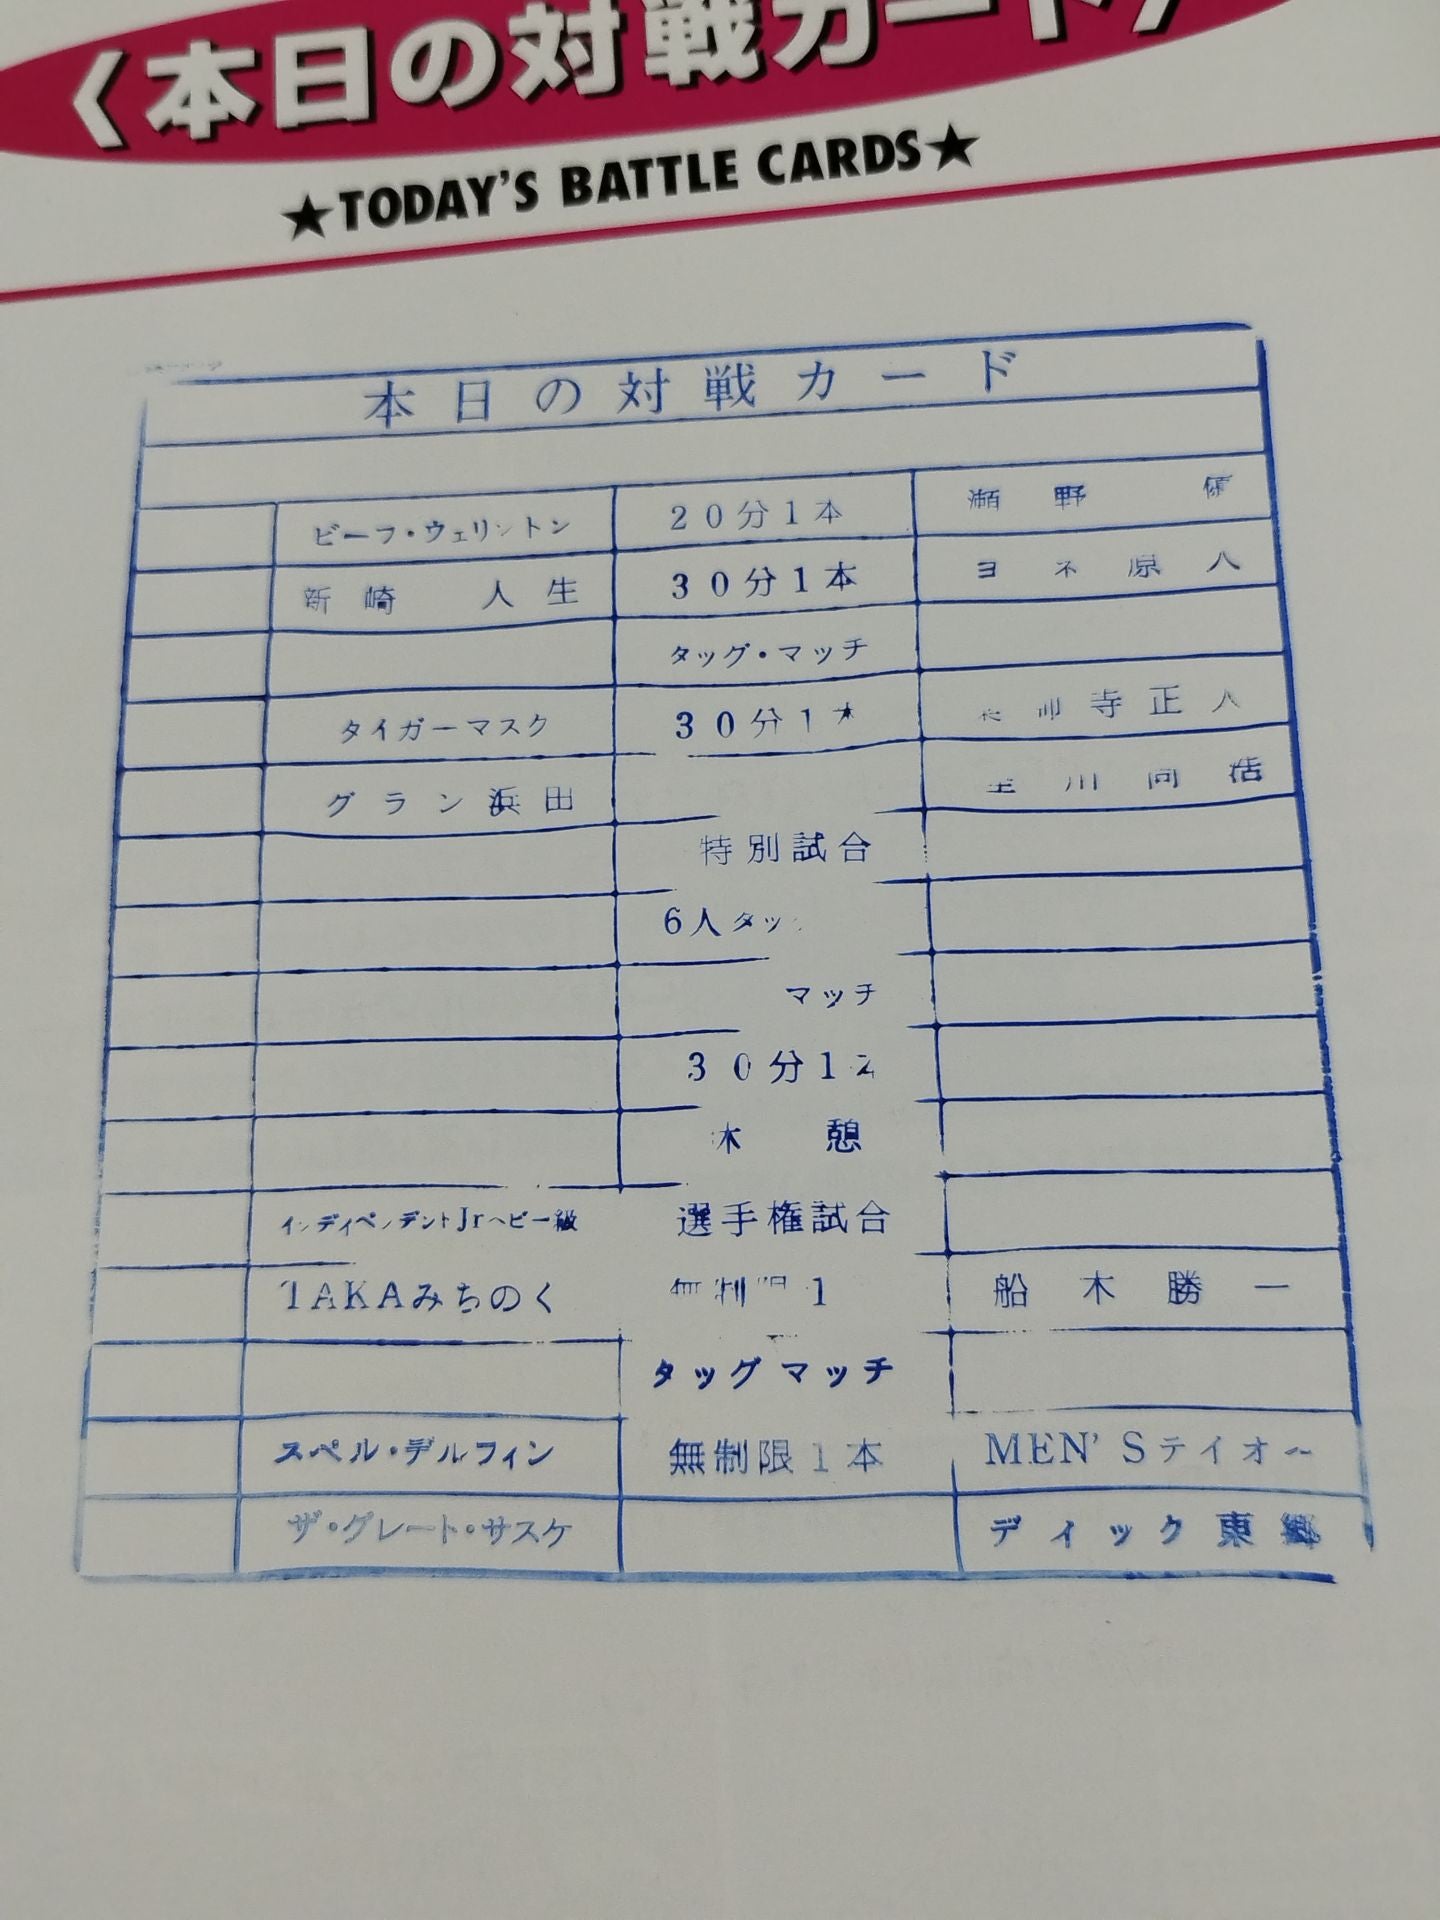 〈本日の対戦カード〉
★TODAY'S BATTLE CARDS★
本日の対戦カード
ビーフ・ウェリントン 20分1本 瀬野 優
新崎 人生 30分1本 ヨネ原人
タッグ・マッチ
タイガーマスク 30分1本 薬師寺正人
グラン浜田 星川尚浩
特別試合
6人タッグ
マッチ
30分1本
休憩
インディペンデントJrヘビー級 選手権試合
TAKAみちのく 無制限1 船木勝一
タッグマッチ
スペル・デルフィン 無制限1本 MEN'Sテイオー
ザ・グレート・サスケ ディック東郷